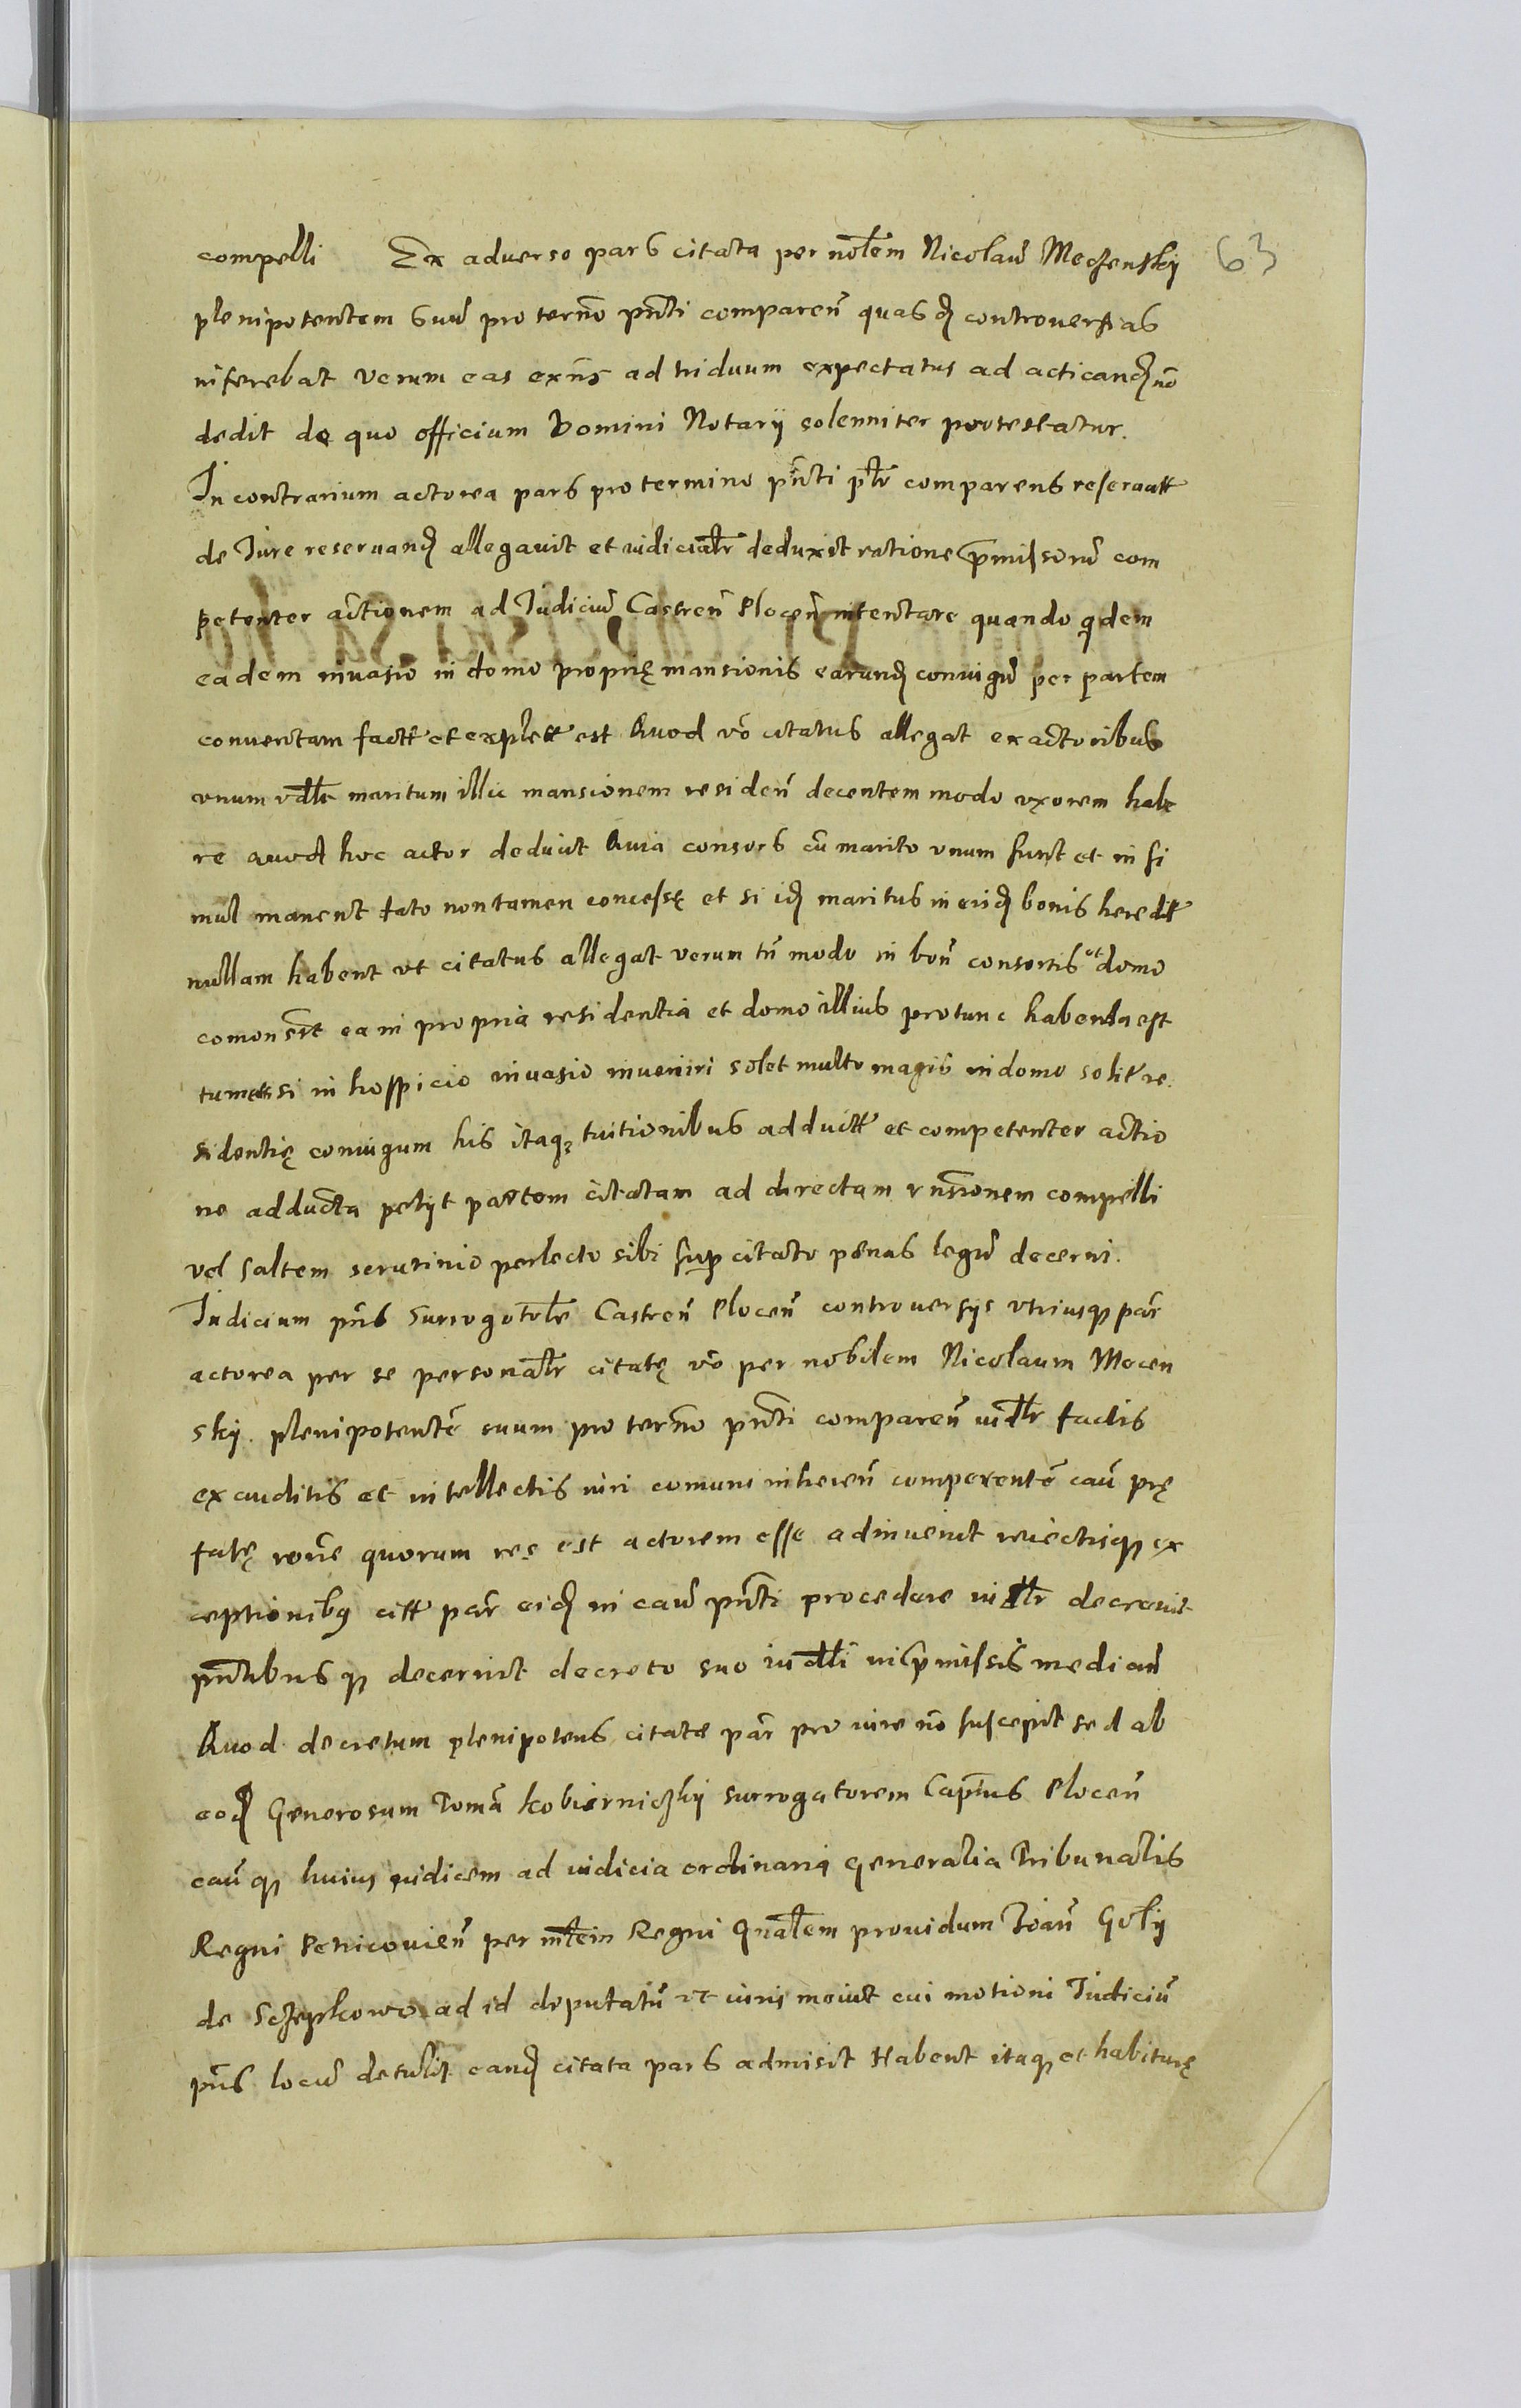 compelli Ex aduerso pars citata per nobłem Nicolaū Meczensky 63
plenipotentem suū pro termō pn̄ti comparen̄ quasd controuersias
inferebat verum eas exn̄s ad triduum expectatus ad acticand nō
dedit de quo officium Domini Notarij solenniter protestatur.
In contrarium actorea pars pro termino pn̄ti ptr comparens reseruatt
de Iure reseruand allegauit et iudicialr deduxit ratione p̄missorū com
petenter actionem ad Iudiciū Castren̄ Plocen̄ intentare quando qdem
eadem inuasio in domo proprię mansionis earund coniugū per partem
conuentam factt et explett est Quod vō citatus allegat ex actoribus
vnum vdtr maritum illic mansionem residen̄ decentem modo vxorem habe
re quod hoc actor deducit Quia consors cū marito vnum sunt et in si
mul manent dato non tamen concessę et si id maritus in eisd bonis heredtt
nullam habent vt citatus allegat verum tn̄ modo in bon̄ consortis et domo
ea in propria residentia et domo illius protunc habenda est
si in hospicio inuasio inueniri solet multo magis in domo solitt re
sidentię coniugum his itaq tuitionibus adductt et competenter actio
ne adducta petijt partem citatam ad directam rn̄sionem compelli
vel saltem scrutinio perlecto sibi sup citato pęnas legū decerni.
Iudicium pn̄s Surrogatorłe Castren̄ Plocen̄ controuersijs vtriusq par̄
actorea per se personalr citatę vō per nobilem Nicolaum Mecen
sky plenipotentē suum pro termō pn̄ti comparen̄ iudłr factis
exauditis et intellectis iuri comuni inheren̄ comperentē cau̅ pre̜
fatę rōne quorum res est actorem esse adinuenit reiectisq ex
ceptionibq citt par̄ eid in cau̅ pn̄ti procedere iudłr decreuit
pn̄tibusq decernit decreto suo iudłi in p̄missis median̄
Quod decretum plenipotens citatę par̄ pro iure nō suscepit sed ab
eod Generosum Tomā Kobierniczky surrogatorem Capn̄us Plocen̄
cau̅q huius iudicem ad iudicia ordinaria generalia Tribunalis
Regni Petricouien̄ per mtem Regni Gnałem prouidum Ioan̄ Goly
de Sczepkowo ad id deputatū vt iuris mouit cui motioni Iudiciū
pn̄s locū detulit eand citata pars admisit Habent itaq et habiturę